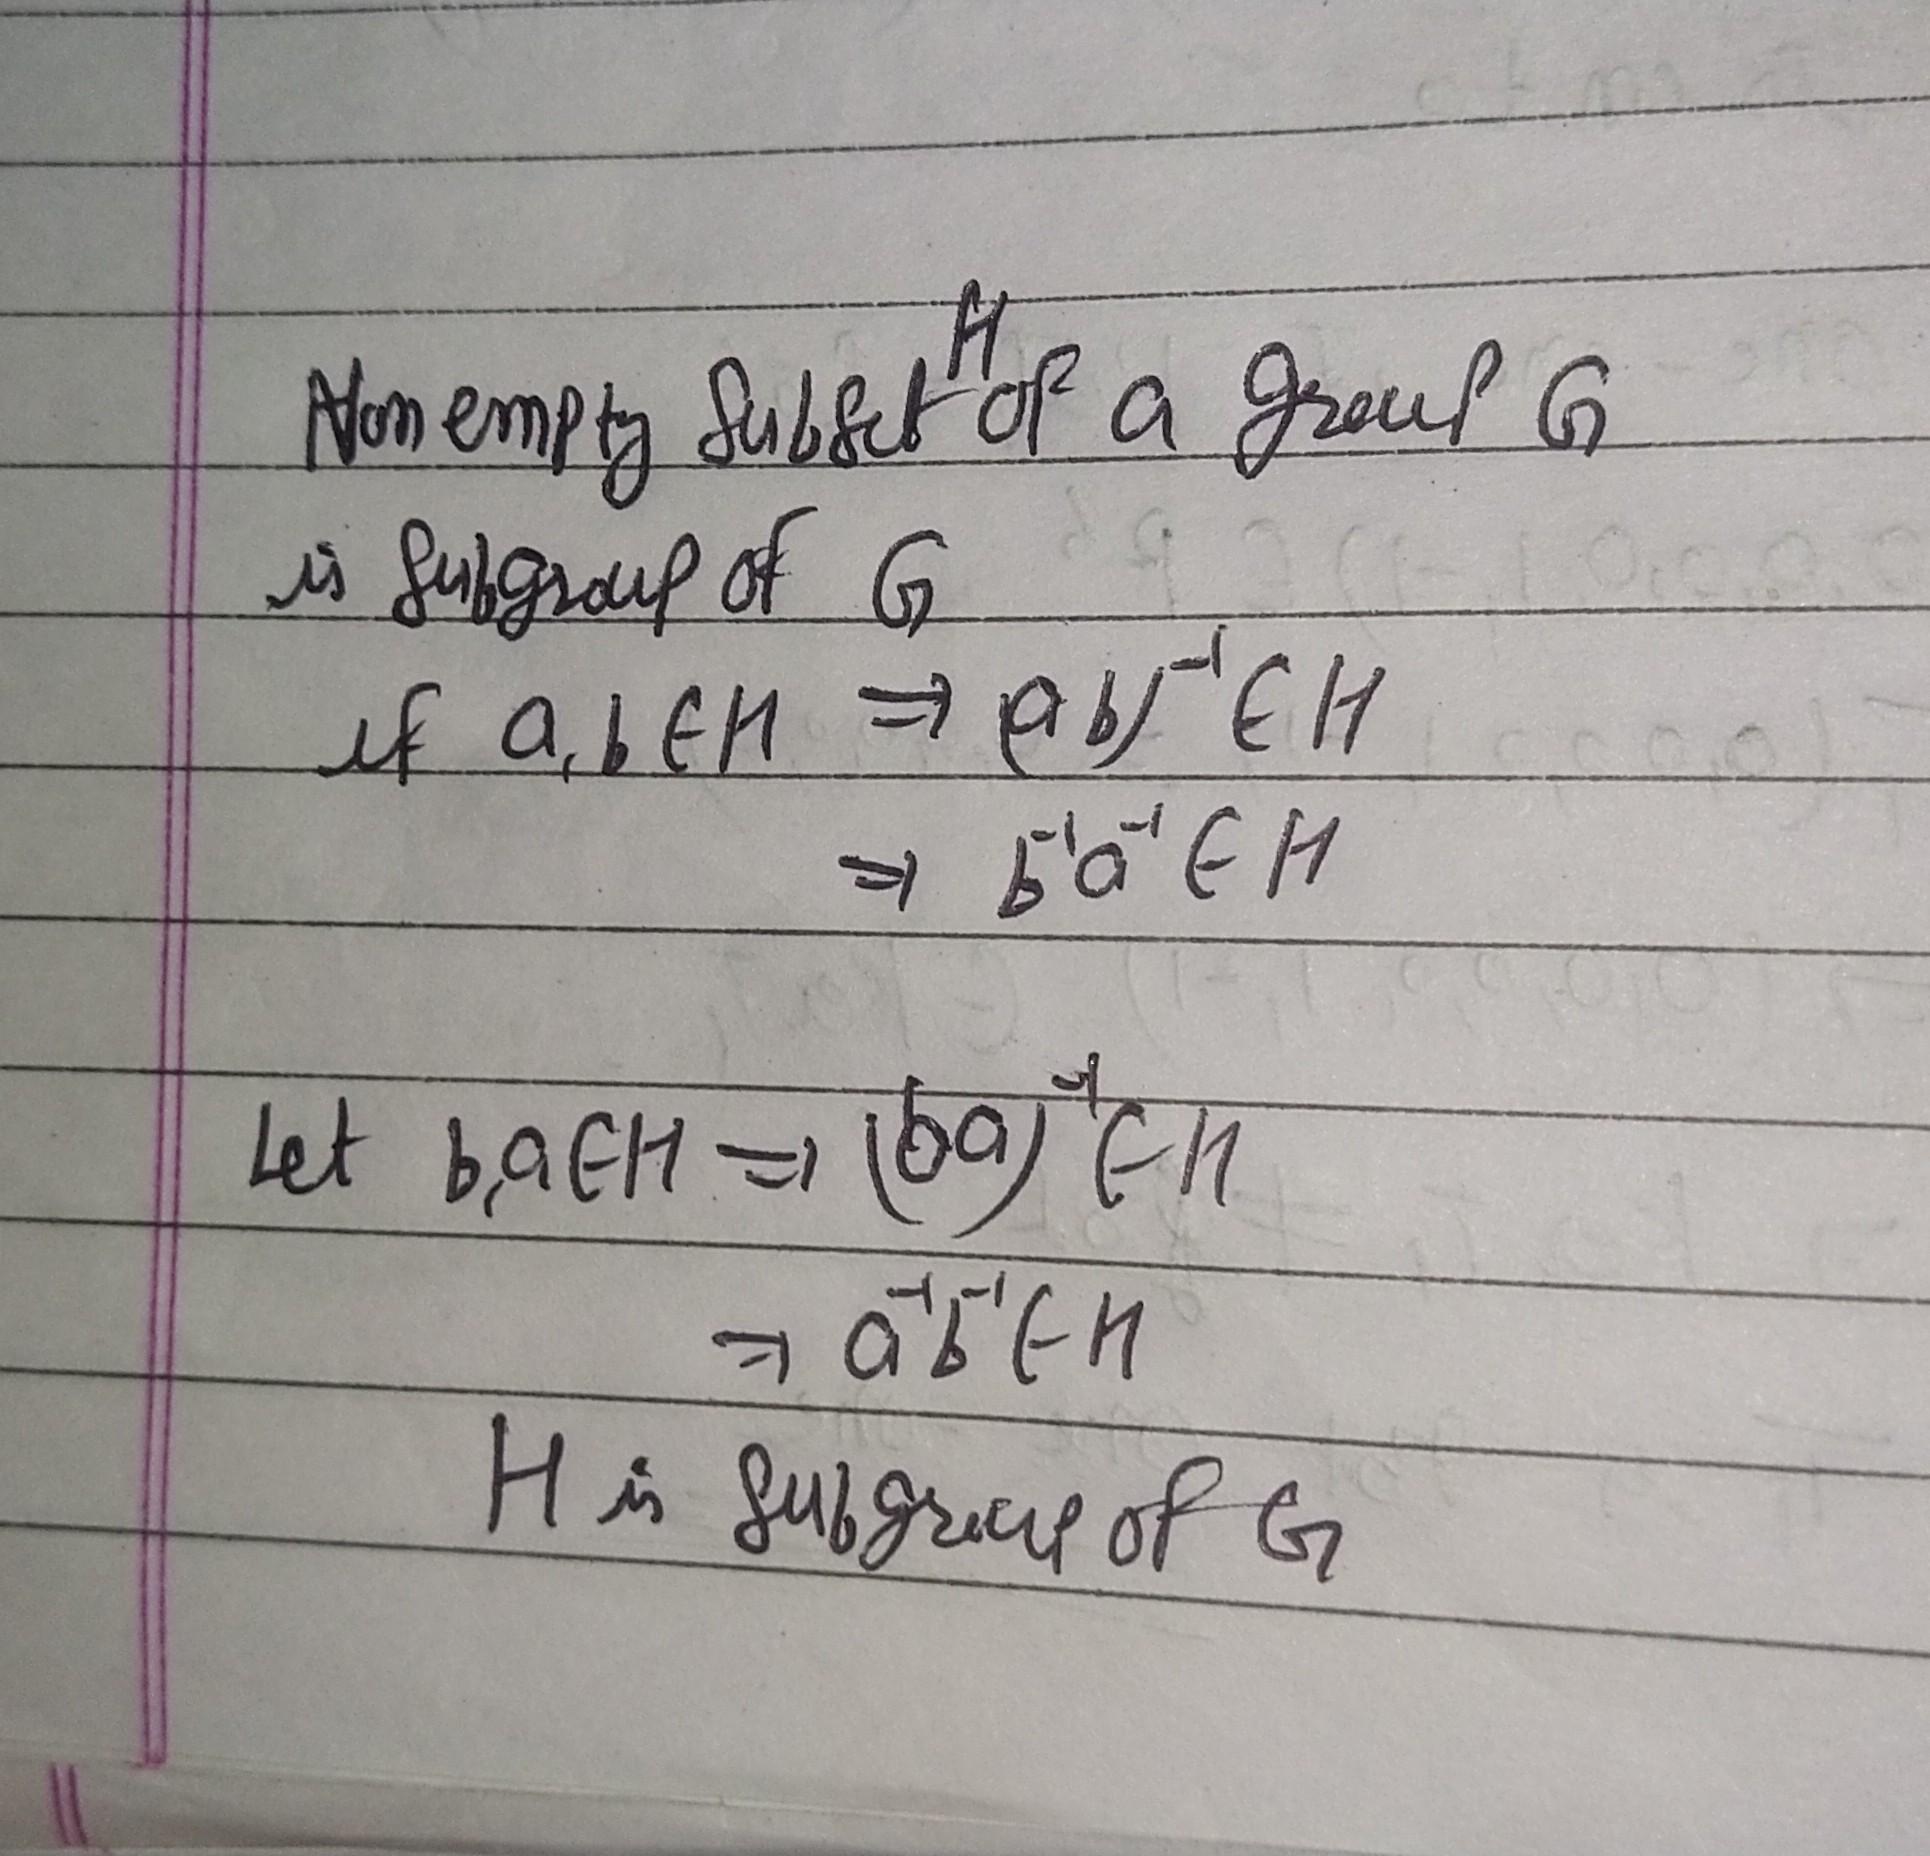 Non empty Subset H of a group G
is Subgroup of G
if a, b ∈ H ⇒ (ab)⁻¹ ∈ H
⇒ b⁻¹a⁻¹ ∈ H
Let b, a ∈ H ⇒ (ba)⁻¹ ∈ H
⇒ a⁻¹b⁻¹ ∈ H
H is Subgroup of G